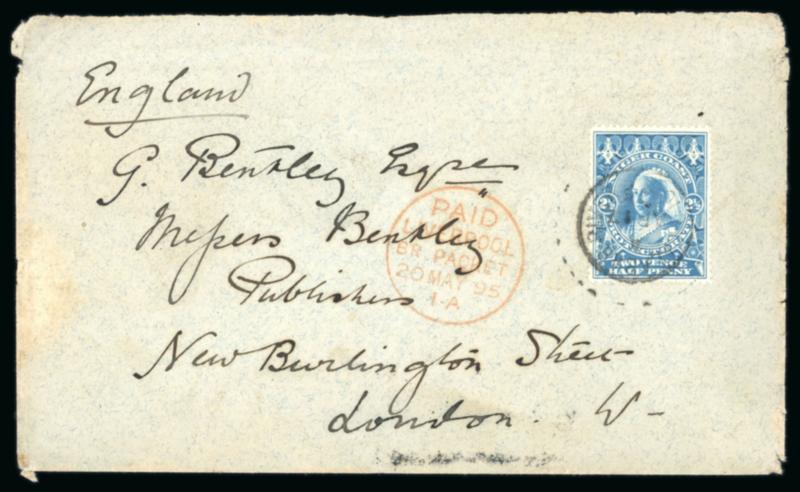 England
G. Bentley Esqre
Messrs Bentley
Publishers
New Burlington Street
London. W-
PAID
LIVERPOOL
BR. PACKET
20 MAY 95
1-A
NIGER COAST
2½ 2½
PROTECTORATE
TWO PENCE
HALF PENNY